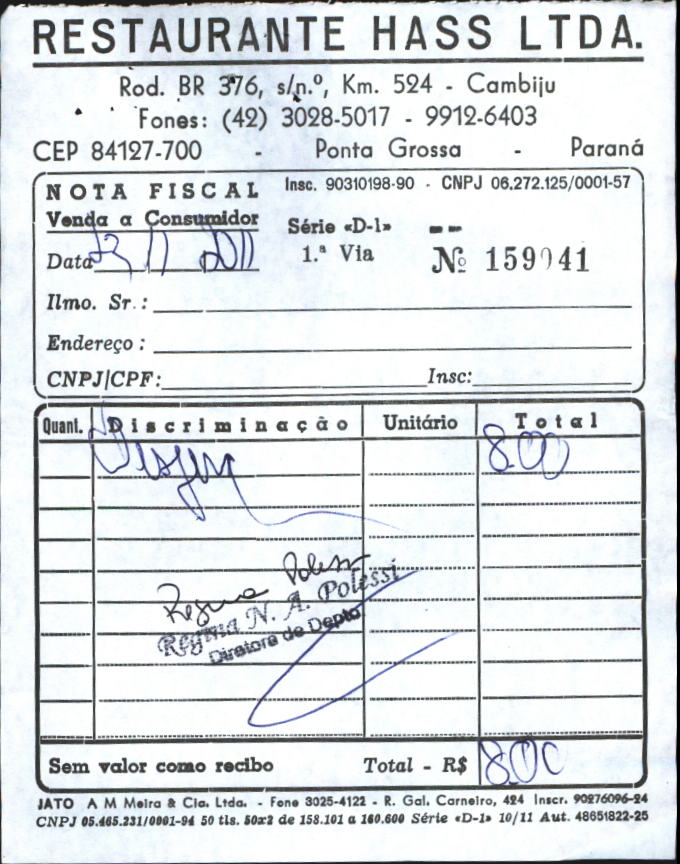 RESTAURANTE HASS LTDA.
Rod. BR 376, s/n.º, Km. 524 - Cambiju
Fones: (42) 3028-5017 - 9912-6403
CEP 84127-700 - Ponta Grossa - Paraná
NOTA FISCAL Insc. 90310198-90 - CNPJ 06.272.125/0001-57
Venda a Consumidor Série «D-1»
Data 23 11 2011 1.ª Via Nº 159941
Ilmo. Sr.:
Endereço:
CNPJ|CPF: Insc:
Quant. Discriminação Unitário Total
8.00
Regina Polessi
Regina N. A. Polessi
Diretora de Depto.
Sem valor como recibo Total - R$ 8.00
JATO A M Meira & Cia. Ltda. - Fone 3025-4122 - R. Gal. Carneiro, 424 Inscr. 90276096-24
CNPJ 05.465.231/0001-94 50 tls. 50x2 de 158.101 a 160.600 Série «D-1» 10/11 Aut. 48651822-25